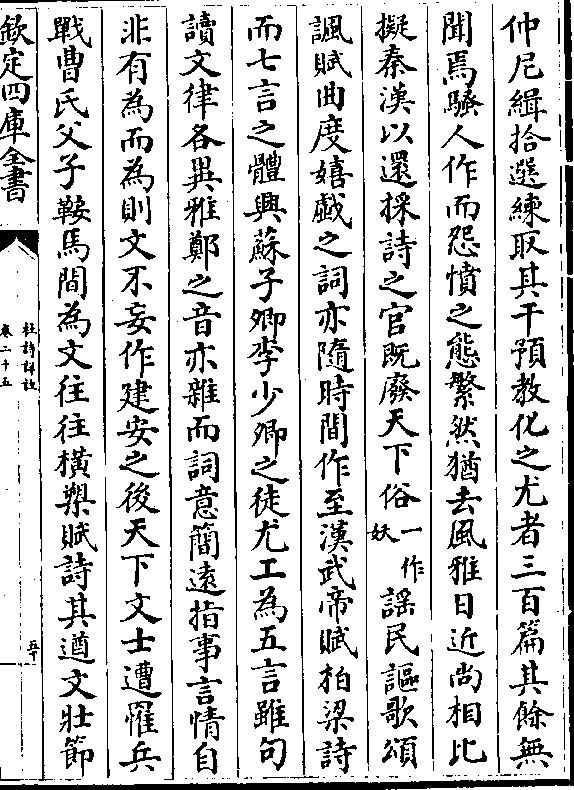 仲尼緝拾選練取其干預教化之尤者三百篇其餘無
聞焉騷人作而怨憤之態繁然猶去風雅日近尚相比
擬秦漢以還採詩之官既廢天下俗一作妖謡民謳歌頌
諷賦曲度嬉戲之詞亦隨時間作至漢武帝賦柏梁詩
而七言之體興蘇子卿李少卿之徒尤工為五言雖句
讀文律各異雅鄭之音亦雜而詞意簡遠指事言情自
非有為而為則文不妄作建安之後天下文士遭罹兵
戰曹氏父子鞍馬間為文往往橫槊賦詩其遒文壯節
欽定四庫全書
杜詩詳註
卷二十五
五十